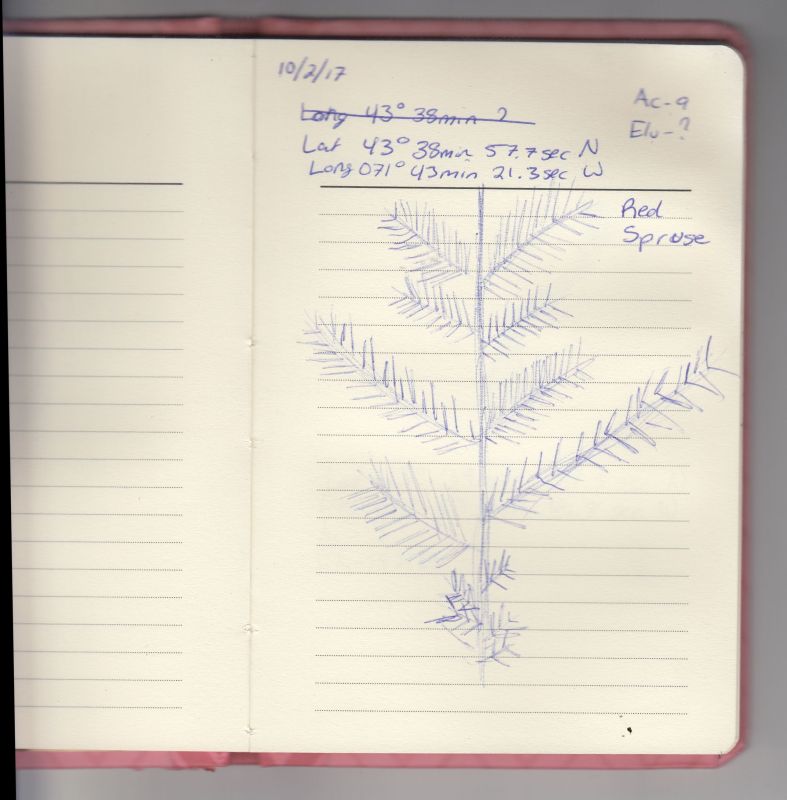 10/2/17
Long 43° 38min ?
Lat 43° 38min 57.7sec N
Long 071° 43min 21.3sec W
Ac-9
Elv-?
Red
Spruse